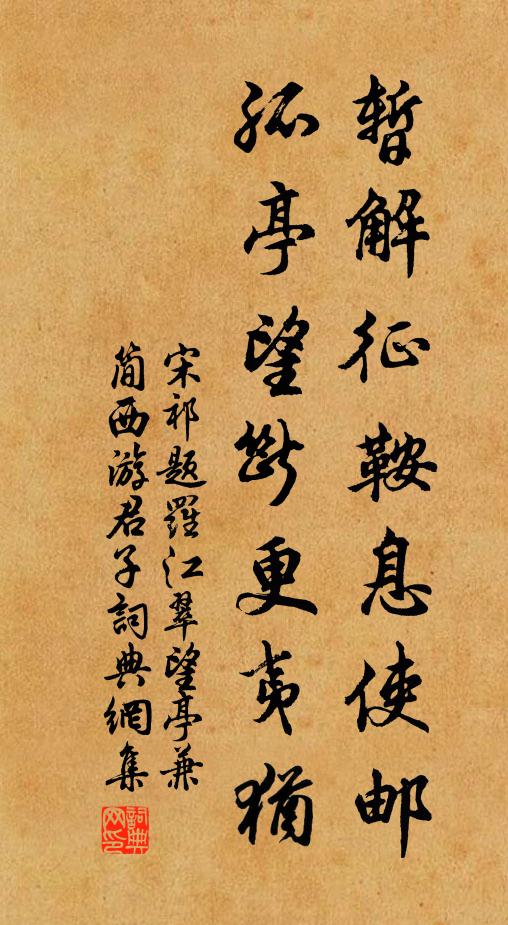 暫解征鞍息使邮
孤亭望斷更夷猶
宋祁题羅江翠望亭兼
简西游君子詞典網集
詞典网印